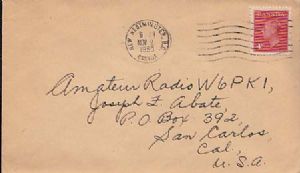 NEW WESTMINSTER, B.C.
NOV 2
1950
CANADA
Amateur Radio W6PK1,
Joseph F. Abate,
P.O Box 392,
San Carlos,
Cal,
U.S.A.